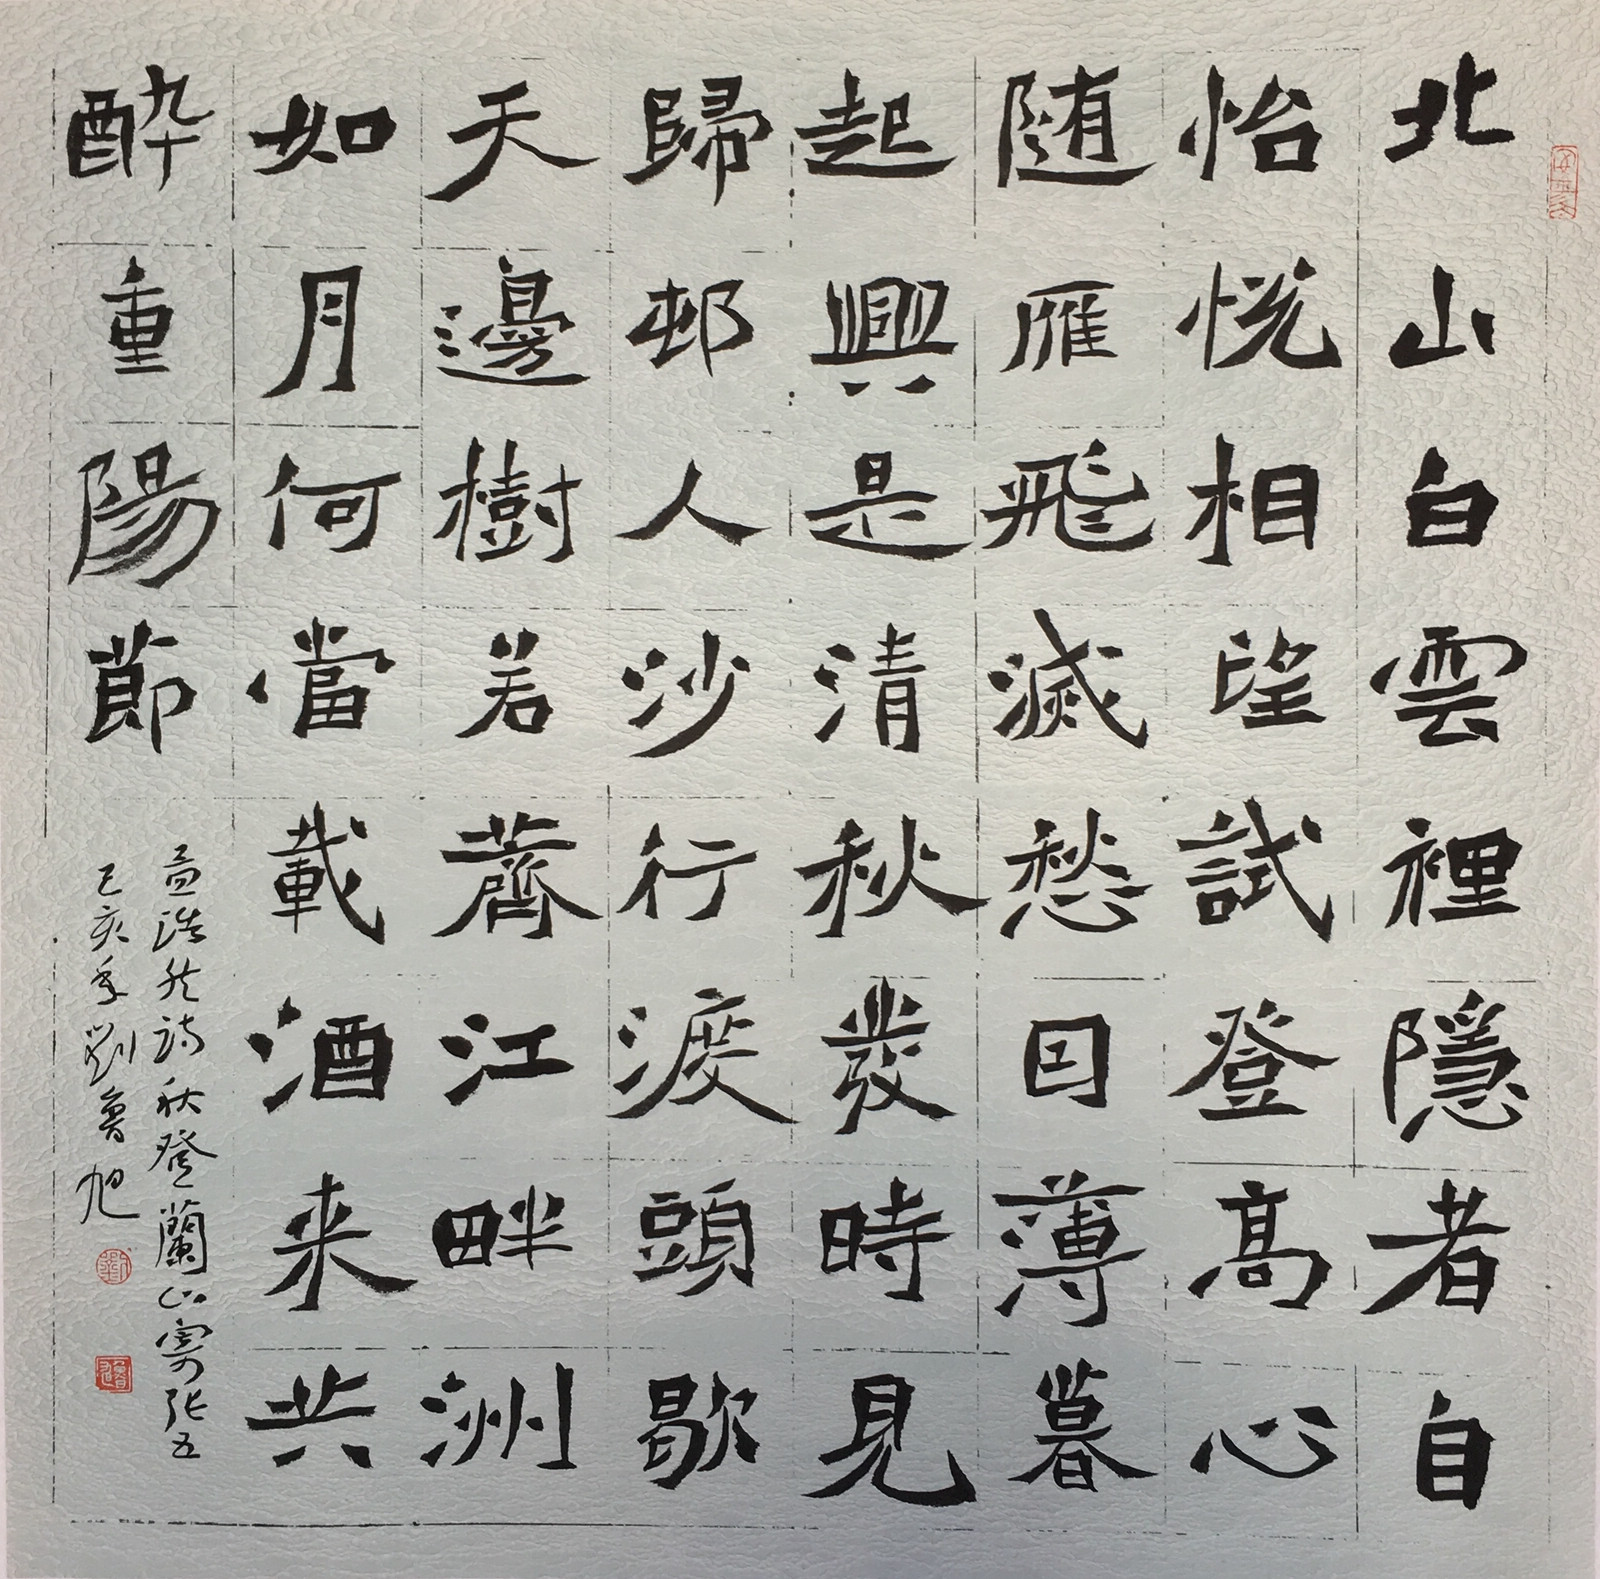 北山白雲裡隱者自
怡悅相望試登高心
随雁飛滅愁囙薄暮
起興是清秋發時見
歸邨人沙行渡頭歇
天邊樹若薺江畔洲
如月何當載酒来共
酔重陽節
孟浩然詩秋登蘭山寄張五
己亥年劉魯旭